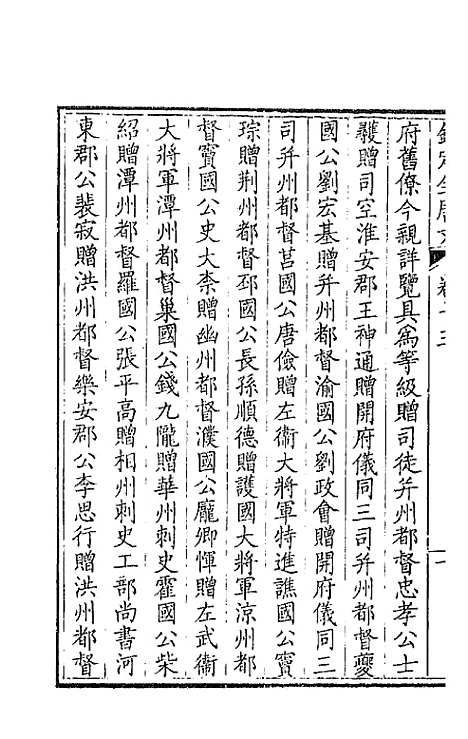 欽定全唐文 卷十三
府舊僚今親詳覽具為等級贈司徒并州都督忠孝公士
彠贈司空淮安郡王神通贈開府儀同三司并州都督夔
國公劉宏基贈并州都督渝國公劉政會贈開府儀同三
司并州都督莒國公唐儉贈左衛大將軍特進譙國公竇
琮贈荆州都督邳國公長孫順德贈護國大將軍涼州都
督竇國公史大柰贈幽州都督濮國公龐卿惲贈左武衛
大將軍潭州都督巢國公錢九隴贈華州刺史霍國公柴
紹贈潭州都督羅國公張平高贈相州刺史工部尚書河
東郡公裴寂贈洪州都督樂安郡公李思行贈洪州都督